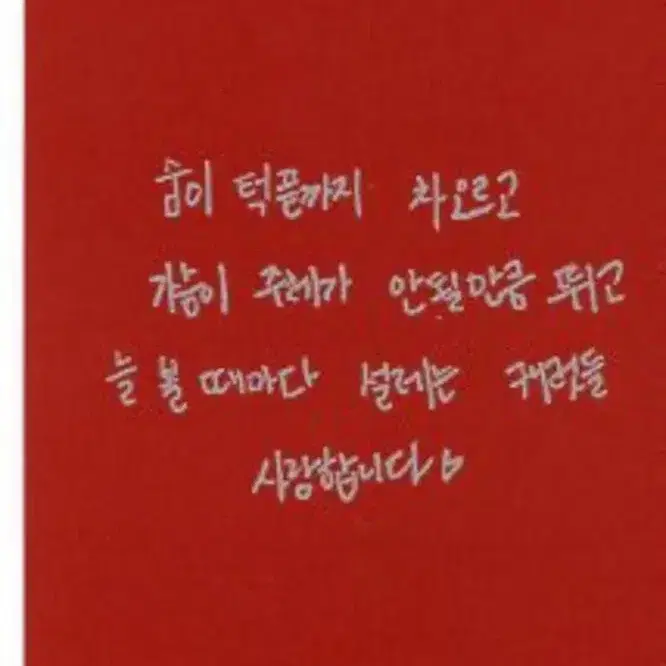 숨이 턱끝까지 차오르고
가슴이 주체가 안될만큼 뛰고
늘 볼 때마다 설레는 캐럿들
사랑합니다♡